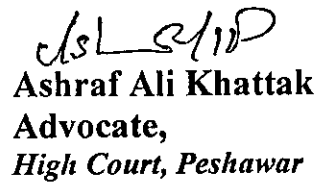 Ashraf Ali Khattak
Advocate,
High Court, Peshawar